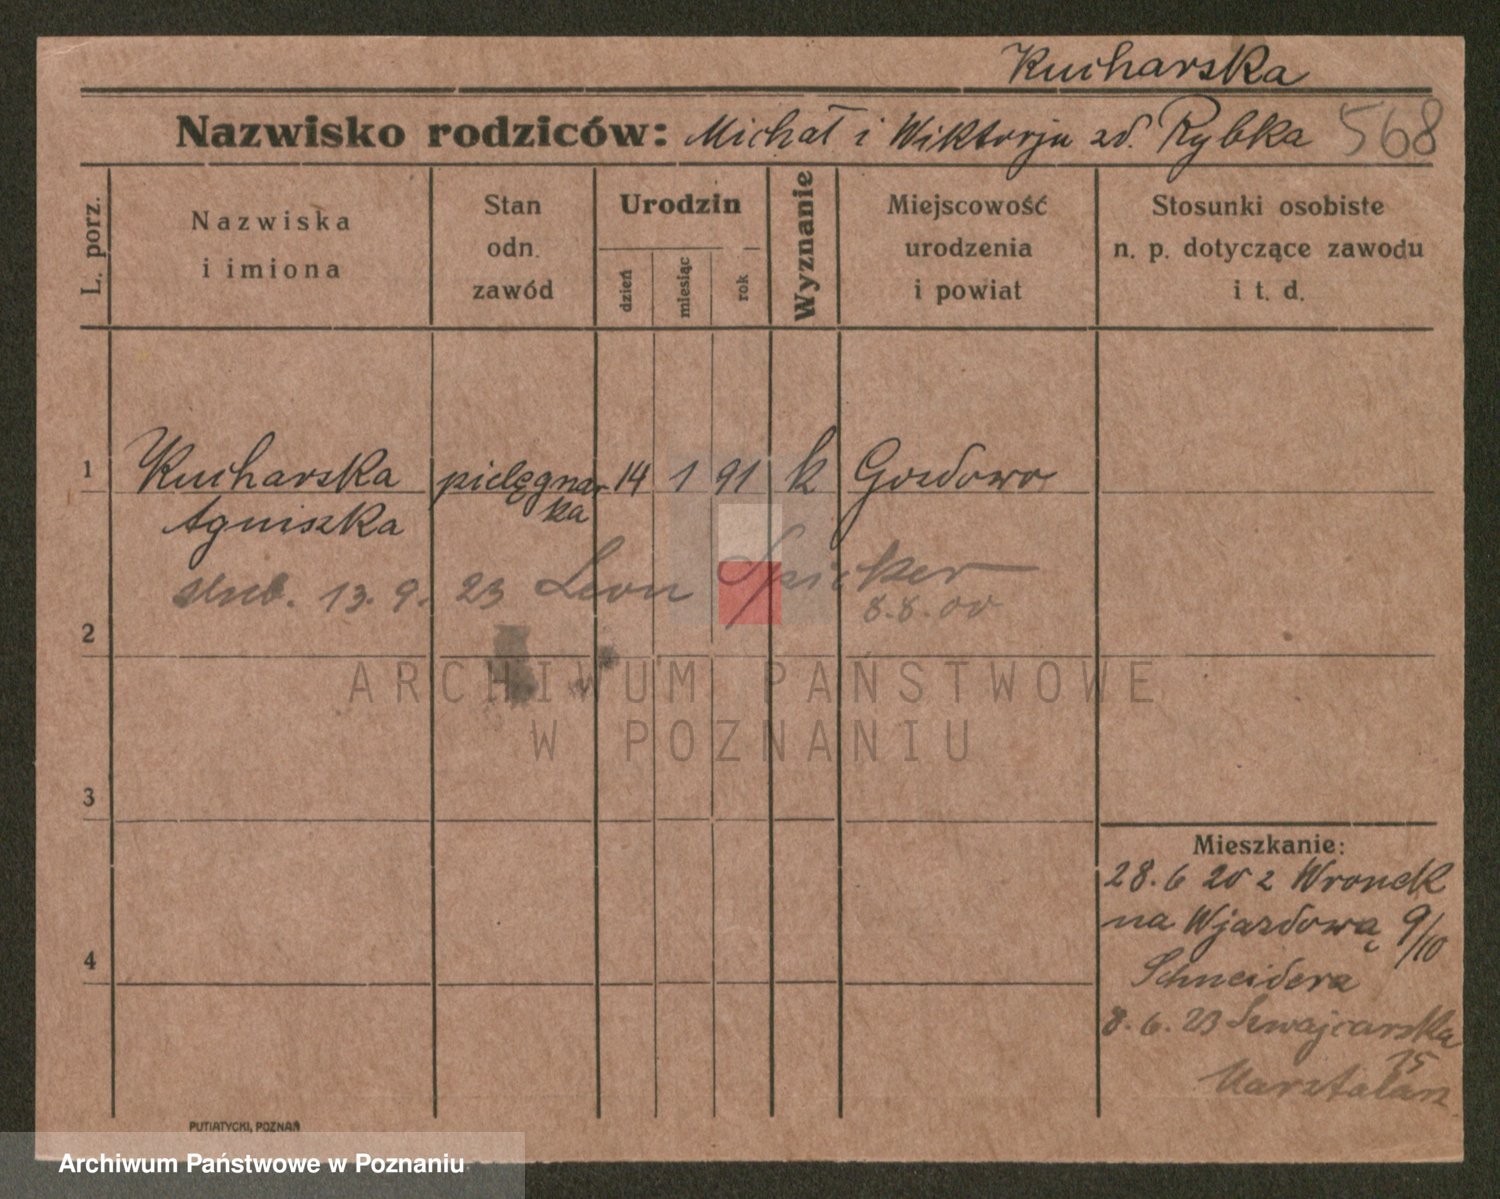 Kucharska
Nazwisko rodziców: Michał i Wiktorja zd. Rybka 568
L. porz.
Nazwiska
i imiona
Stan
odn.
zawód
Urodzin
dzień
miesiąc
rok
Wyznanie
Miejscowość
urodzenia
i powiat
Stosunki osobiste
n. p. dotyczące zawodu
i t. d.
1 Kucharska pielęgnar 14 1 91 k Gozdowo
Agniszka ka
ślub. 13. 9. 23 Leon Spicker
8.8.00
2
3
4
ARCHIWUM PAŃSTWOWE
W POZNANIU
Mieszkanie:
28. 6 20 z Wronek
na Wjazdową 9/10
Schneidera
8. 6. 23 Szwajcarska
15
Marstalarz.
PUTIATYCKI, POZNAŃ
Archiwum Państwowe w Poznaniu